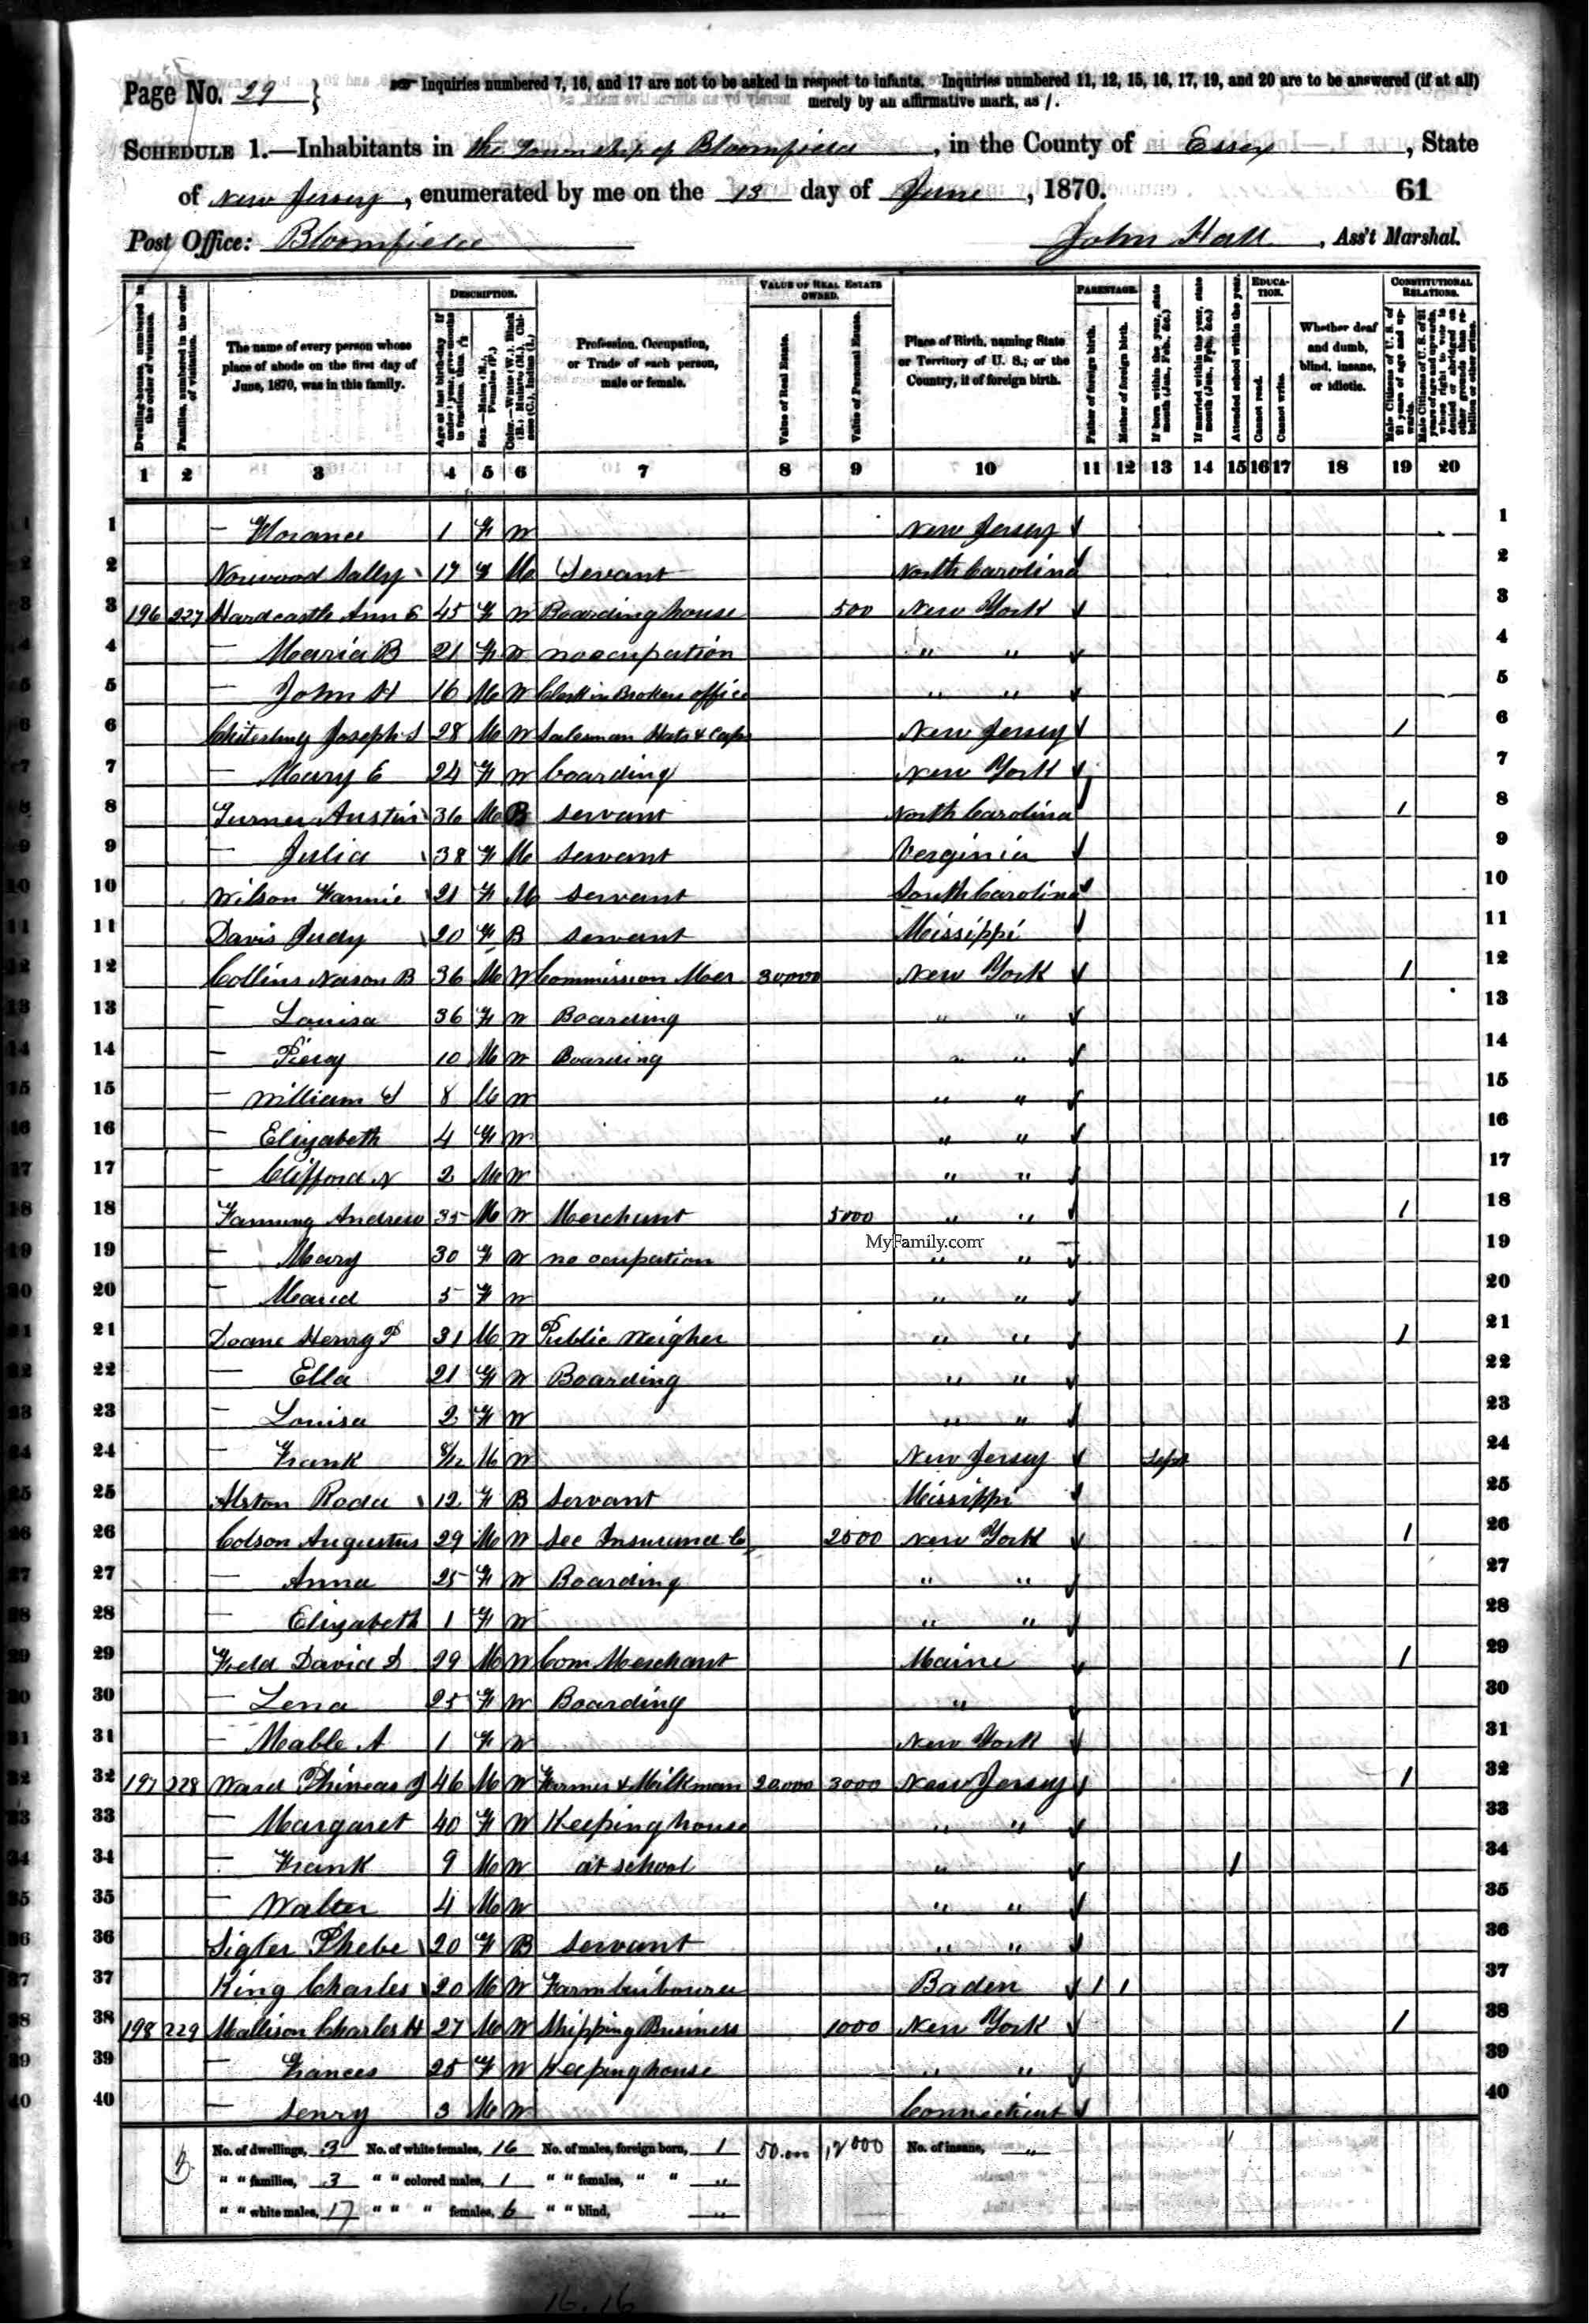 Page No. 29 } Inquiries numbered 7, 16, and 17 are not to be asked in respect to infants. Inquiries numbered 11, 12, 15, 16, 17, 19, and 20 are to be answered (if at all)
merely by an affirmative mark, as /.
SCHEDULE 1.—Inhabitants in the Township of Bloomfield, in the County of Essex, State
of New Jersey, enumerated by me on the 13 day of June, 1870. 61
Post Office: Bloomfield John Hall, Ass't Marshal.
DESCRIPTION. VALUE OF REAL ESTATE OWNED. PARENTAGE. EDUCATION. CONSTITUTIONAL RELATIONS.
Dwelling-houses, numbered in the order of visitation.
Families, numbered in the order of visitation.
The name of every person whose place of abode on the first day of June, 1870, was in this family.
Age at last birth-day. If under 1 year, give months in fractions, thus, 3/12
Sex.—Males (M.), Females (F.)
Color.—White (W.), Black (B.), Mulatto (M.), Chinese (C.), Indian (I.)
Profession, Occupation, or Trade of each person, male or female.
Value of Real Estate.
Value of Personal Estate.
Place of Birth, naming State or Territory of U. S.; or the Country, if of foreign birth.
Father of foreign birth.
Mother of foreign birth.
If born within the year, state month (Jan., Feb., &c.)
If married within the year, state month (Jan., Feb., &c.)
Attended school within the year.
Cannot read.
Cannot write.
Whether deaf and dumb, blind, insane, or idiotic.
Male Citizens of U. S. of 21 years of age and upwards.
Male Citizens of U. S. of 21 years of age and upwards, whose right to vote is denied or abridged on other grounds than rebellion or other crime.
1 2 3 4 5 6 7 8 9 10 11 12 13 14 15 16 17 18 19 20
1 — Florance 1 F W New Jersey 1
2 Norwood Sally 17 F M Servant North Carolina 2
3 196 227 Hardcastle Ann E 45 F W Boarding house 500 New York 3
4 — Maria B 21 F W no ocupation " " 4
5 — John H 16 M W Clerk in Brokers office " " 5
6 Joseph S 28 M W Salesman Hats & Caps New Jersey 1 6
7 — Mary E 24 F W boarding New York 7
8 Turner Austin 36 M B servant North Carolina 1 8
9 — Julia 38 F M servant Verginia 9
10 Wilson Fannie 21 F M servant South Carolina 10
11 Davis Judy 20 F B servant Missippi 11
12 Collins Nason B 36 M W Commission Mer 30,000 New York 1 12
13 — Louisa 36 F W Boarding " " 13
14 — Piercy 10 M W Boarding " " 14
15 — William S 8 M W " " 15
16 — Elizabeth 4 F W " " 16
17 — Clifford N 2 M W " " 17
18 Fanning Andrew 35 M W Merchant 5000 " " 1 18
MyFamily.com
19 — Mary 30 F W no ocupation " " 19
20 — Maud 5 F W " " 20
21 Doane Henry P 31 M W Public Weigher " " 1 21
22 — Ella 21 F W Boarding " " 22
23 — Louisa 2 F W " " 23
24 — Frank 8/12 M W New Jersey Sept 24
25 Alston Roda 12 F B servant Missippi 25
26 Colson Augustus 29 M W Sec Insurance Co 2500 New York 1 26
27 — Anna 25 F W Boarding " " 27
28 — Elizabeth 1 F W " " 28
29 Field David D 29 M W Com Merchant Maine 1 29
30 — Lena 25 F W Boarding " 30
31 — Mable A 1 F W New York 31
32 197 228 Ward Phineas J 46 M W Farmer & Milkman 20,000 3000 New Jersey 1 32
33 — Margaret 40 F W Keeping house " " 33
34 — Frank 9 M W at school " 1 34
35 — Walter 4 M W " " 35
36 Sigler Phebe 20 F B servant " " 36
37 King Charles 20 M W Farm Labourer Baden 1 1 37
38 198 229 Mallison Charles H 27 M W Shipping Business 1000 New York 1 38
39 — Frances 25 F W Keeping house " " 39
40 — Henry 3 M W Connecticut 40
No. of dwellings, 3 No. of white females, 16 No. of males, foreign born, 1 50.000 12000 No. of insane, "
" " families, 3 " " colored males, 1 " " females, " " "
" " white males, 17 " " " females, 6 " " blind, "
16.16